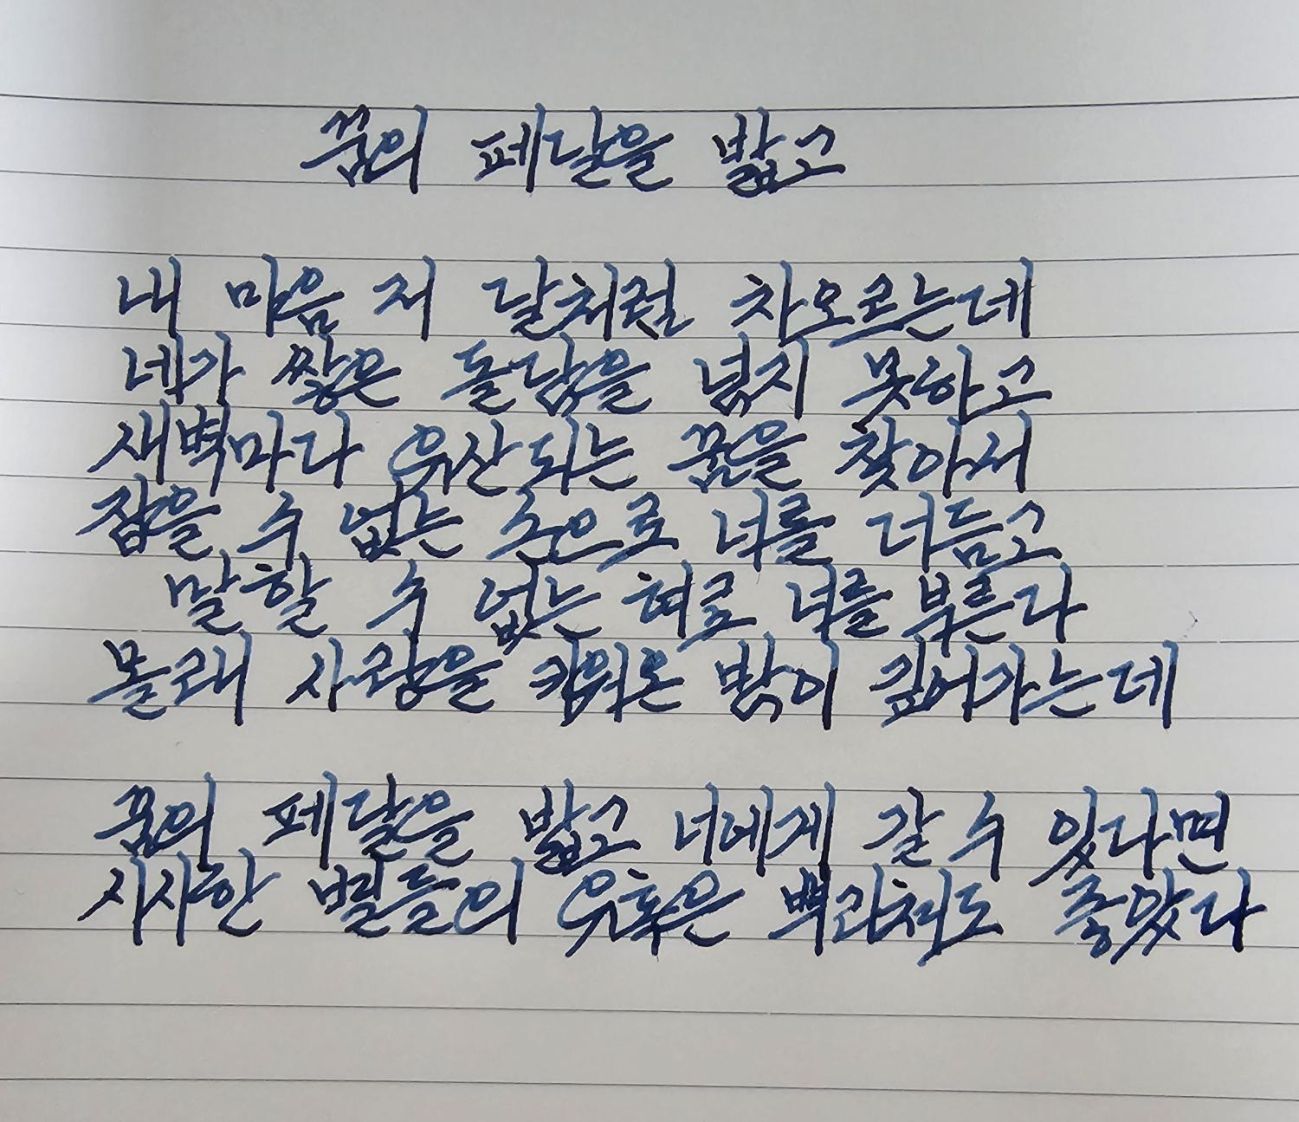 꿈의 페달을 밟고
내 마음 저 달처럼 차오르는데
네가 쌓은 돌담을 넘지 못하고
새벽마다 유산되는 꿈을 찾아서
잡을 수 없는 손으로 너를 더듬고
말할 수 없는 혀로 너를 부른다
몰래 사랑을 키워온 밤이 깊어가는데
꿈의 페달을 밟고 너에게 갈 수 있다면
시시한 별들의 유혹은 뿌리쳐도 좋았다